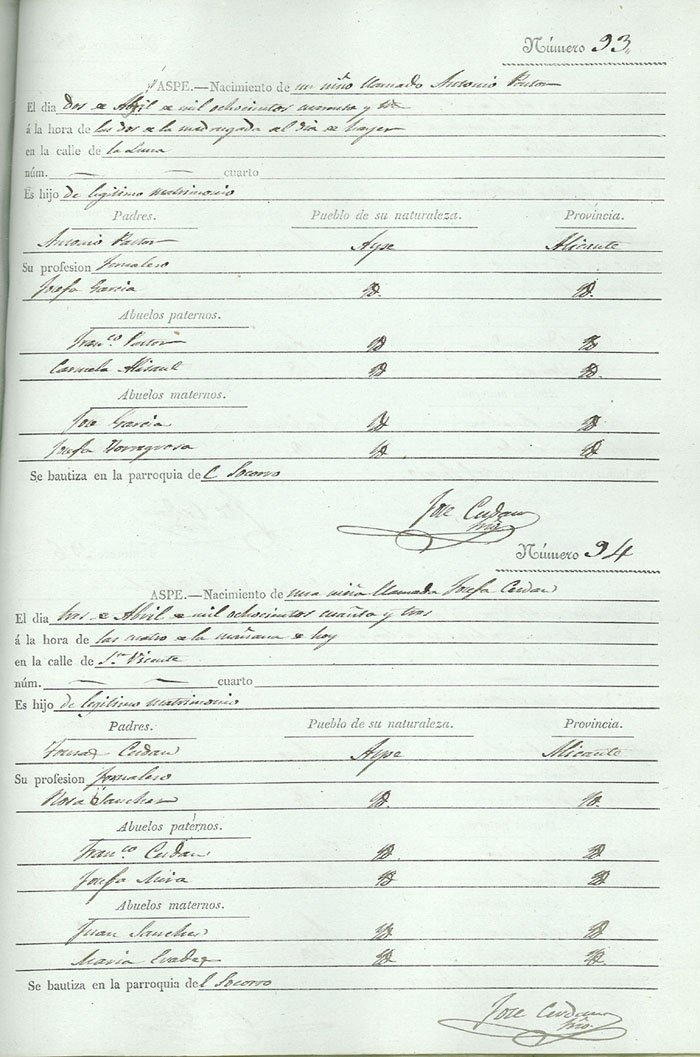 Número 93.
ASPE.—Nacimiento de un niño llamado Antonio Pastor
El dia dos de Abril de mil ochocientos cuarenta y tres
á la hora de las dos de la madrugada del dia de hayer
en la calle de la Luna
núm. — — cuarto
Es hijo de legitimo matrimonio
Padres. Pueblo de su naturaleza. Província.
Antonio Pastor Aspe Alicante
Su profesion Jornalero
Josefa Garcia Id. Id.
Abuelos paternos.
Fran.co Pastor Id Id
Carmela Alisant Id Id.
Abuelos maternos.
Jose Garcia Id Id
Josefa Id Id
Se bautiza en la parroquia del Socorro
Jose Cerdan
Número 94
ASPE.—Nacimiento de una niña llamada Josefa Cerdan
El dia tres de Abril de mil ochocientos cuarenta y tres
á la hora de las cuatro de la mañana de hoy
en la calle de Sn Vicente
núm. — — cuarto
Es hijo de legitimo matrimonio
Padres. Pueblo de su naturaleza. Provincia.
Tomas Cerdan Aspe Alicante
Su profesion Jornalero
Rosa Sanchez Id. Id.
Abuelos patérnos.
Fran.co Cerdan Id. Id
Josefa Mira Id Id
Abuelos maternos.
Juan Sanchez Id Id
Maria Id Id
Se bautiza en la parroquia del Socorro
Jose Cerdan